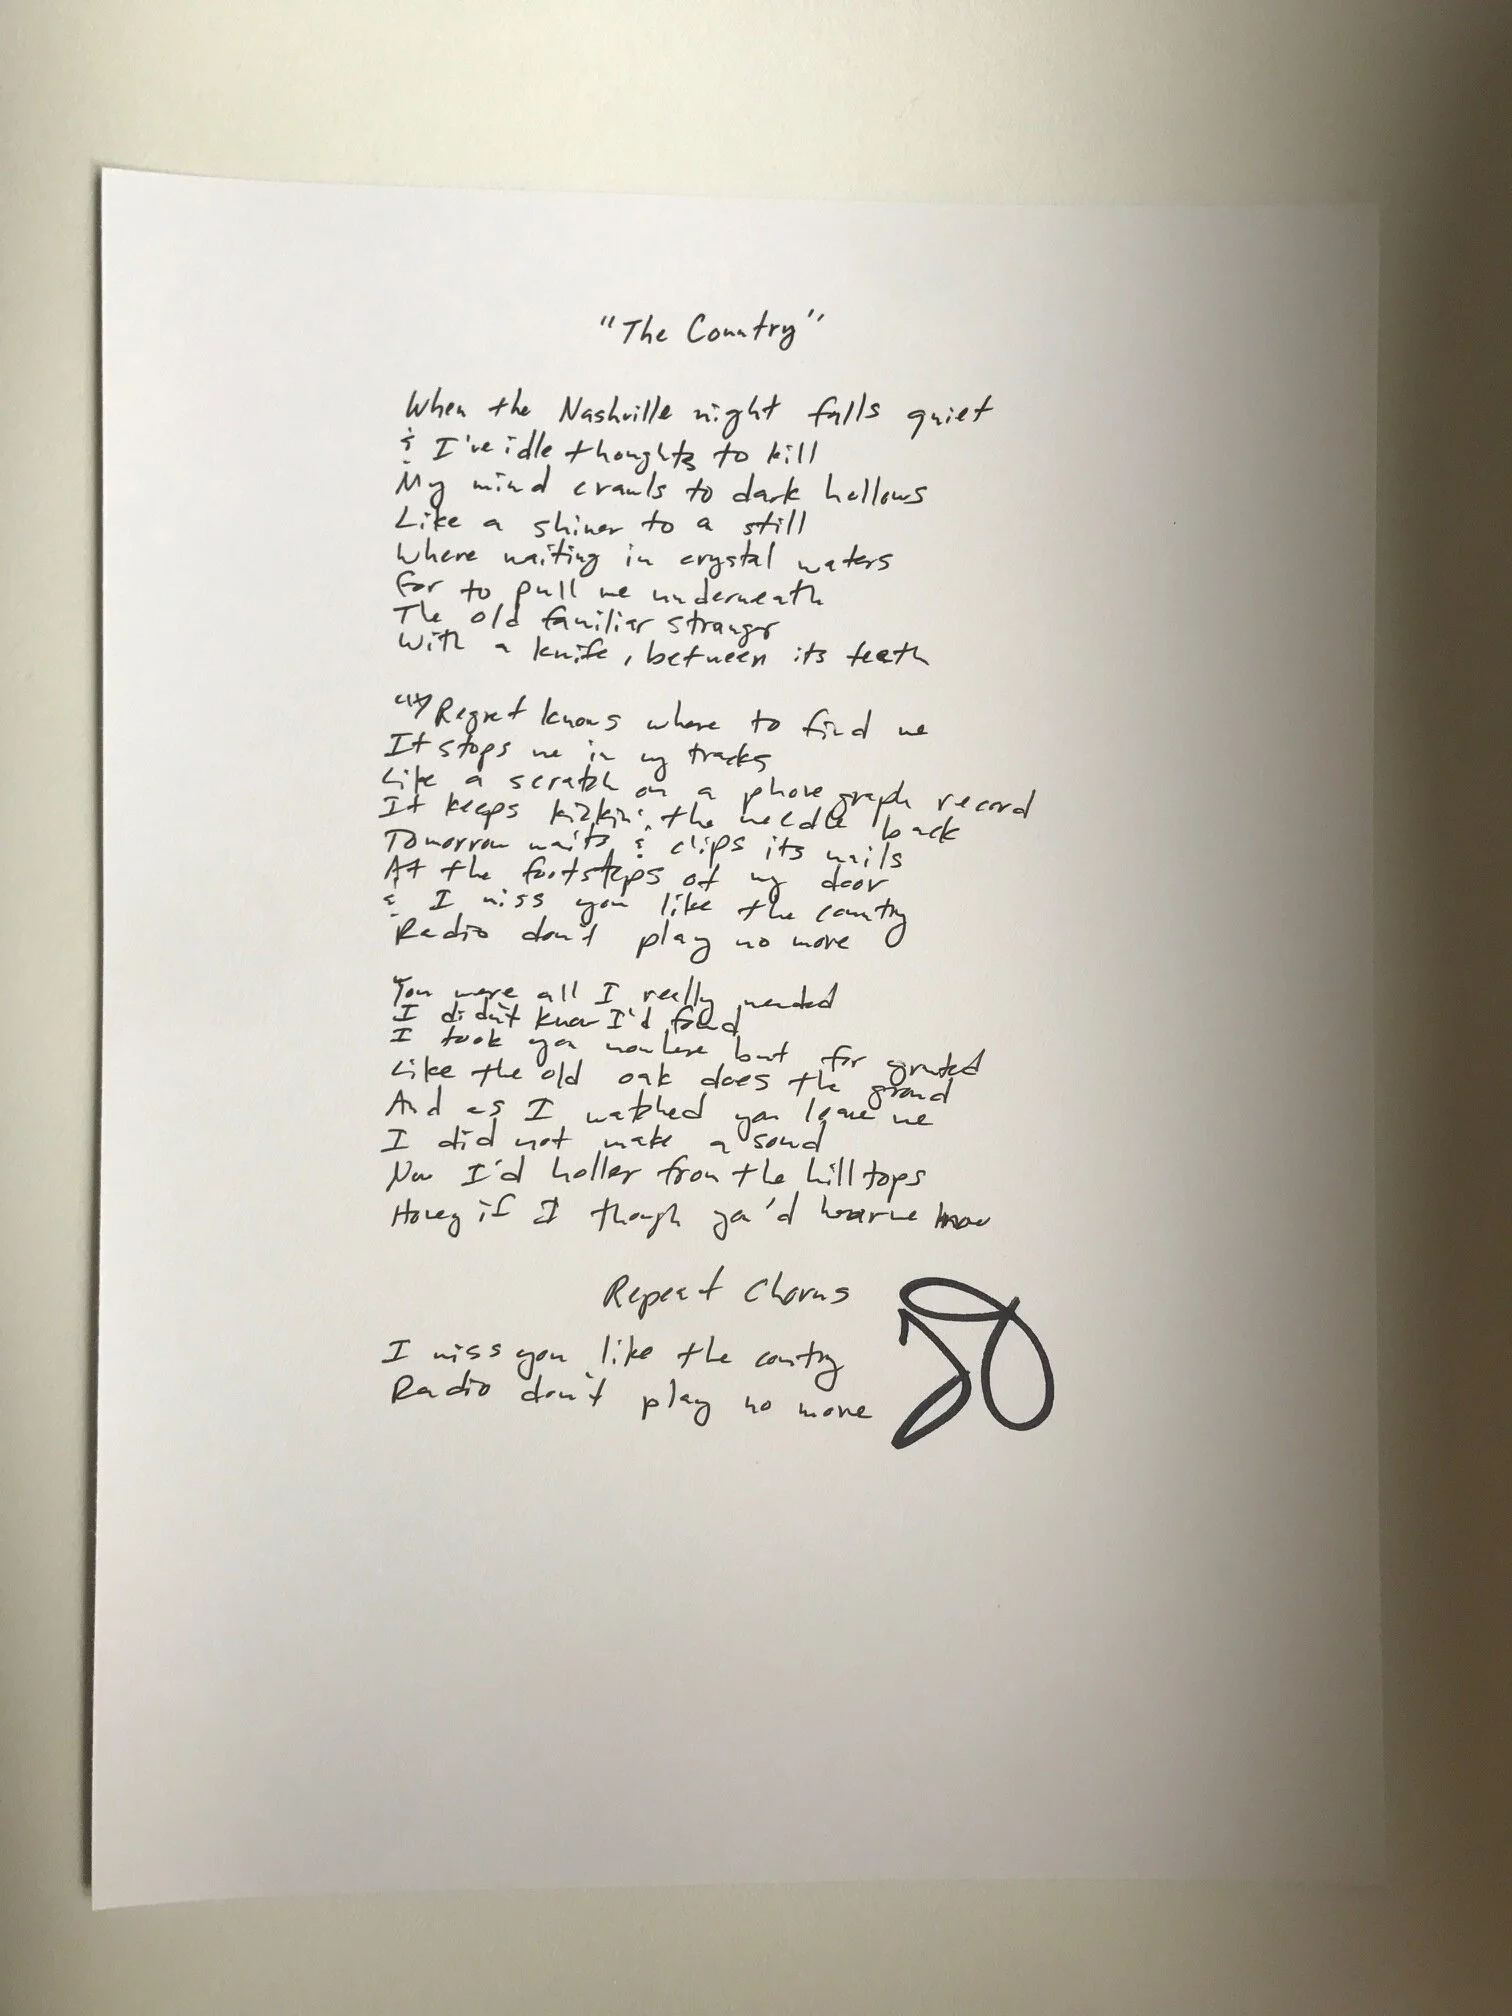 "The Country"
When the Nashville night falls quiet
& I've idle thoughts to kill
My mind crawls to dark hollows
Like a shiner to a still
Where waiting in crystal waters
For to pull me underneath
The old familiar stranger
With a knife, between its teeth
Regret knows where to find me
It stops me in my tracks
Like a scratch on a phonograph record
It keeps kickin' the needle back
Tomorrow waits & clips its nails
At the footsteps of my door
& I miss you like the country
Radio don't play no more
You were all I really needed
I didn't know I'd found
I took you nowhere but for granted
Like the old oak does the ground
And as I watched you leave me
I did not make a sound
Now I'd holler from the hilltops
Honey if I though you'd hear me now
Repeat Chorus
I miss you like the country
Radio don't play no more